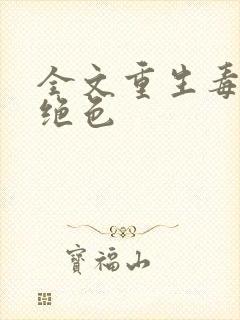 全文重生毒
绝色
寶福山